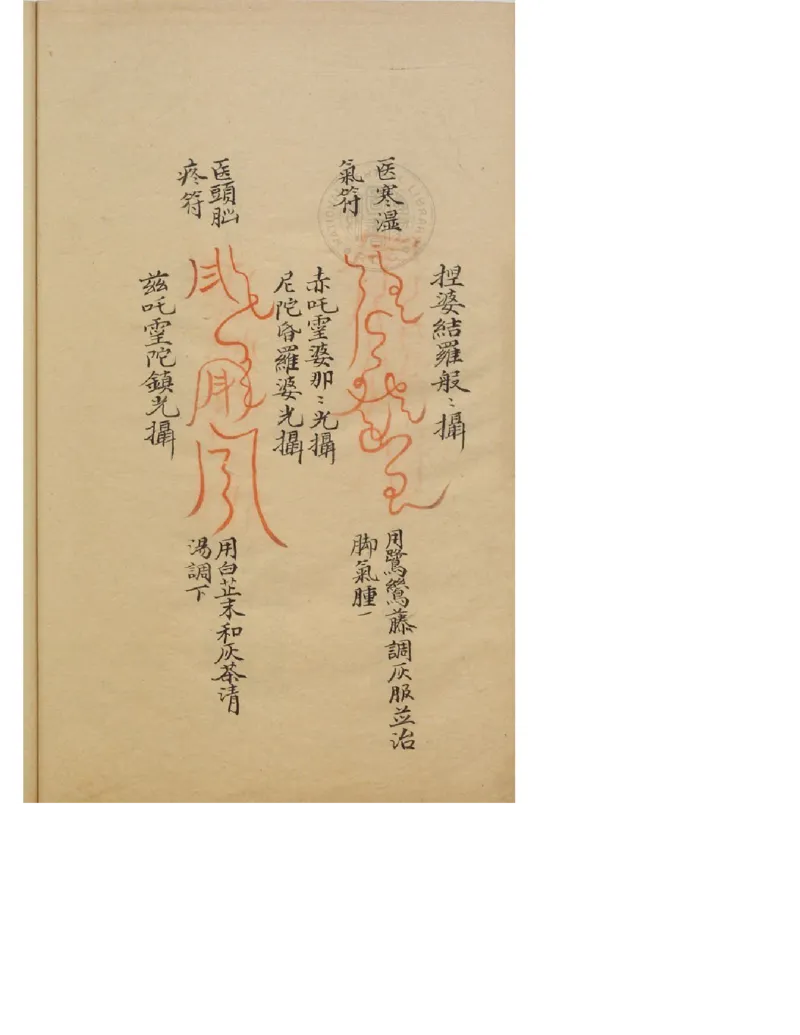 捏婆結羅般〻攝
医寒濕
氣符
用鷺鷥藤調灰服並治
脚氣腫一
赤吒霻婆那〻光攝
尼陀昏羅婆光攝
医頭腦
疼符
用白芷末和灰茶清
湯調下
兹吒霻陀鎮光攝